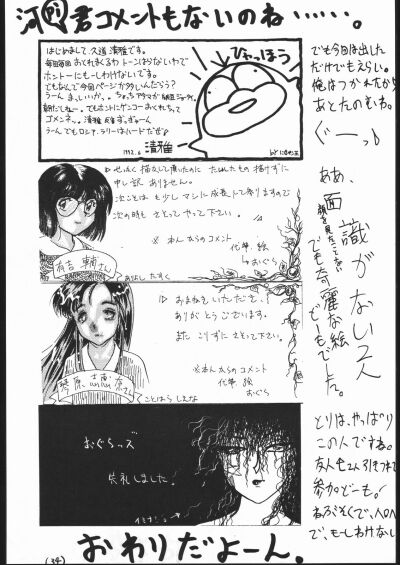 河内君コメントもないのね……。
はじめまして、久道 清雅です。
毎回毎回おてれまくりトーンはらないわで
ホントーにもーしわけないです。
でもなんで今回ページが多いんだろう？
朝だしねー。でもホントにゲンコーおくれちって
ゴメンネ。
うーん でもロシア、ラリーはハードだぜ♪
1992.6
清雅
ひゃっほう
でも今回は出した
だけでもえらい。
俺はつかれたから
あとたのむわ。
ぐーっ♪
せっかく描なんで頂いたのに たいしたもの描けずに
申し訳 ありません。
次ことはもう少し マシに成長して参りますので
次の時も さそって やって 下さい。
※ わんからのコメント
代筆 絵
おぐら
有吉 輔さん
ありよし たすく
ああ、面識がない2人
顔を見たことない
でも奇麗な絵
どーもでした。
おまねきいただき、
ありがとうございます。
また こりずに さそって下さい。
※わんからのコメント
代筆 絵
おぐら
ことはら しえな
おぐらッズ
失礼しました。
とりは、やっぱり
この人ですね。
友人も2人引きつれて
参加どーも。
ねぶそくで、
で、もーしわけない
おわりだよーん。
(34)